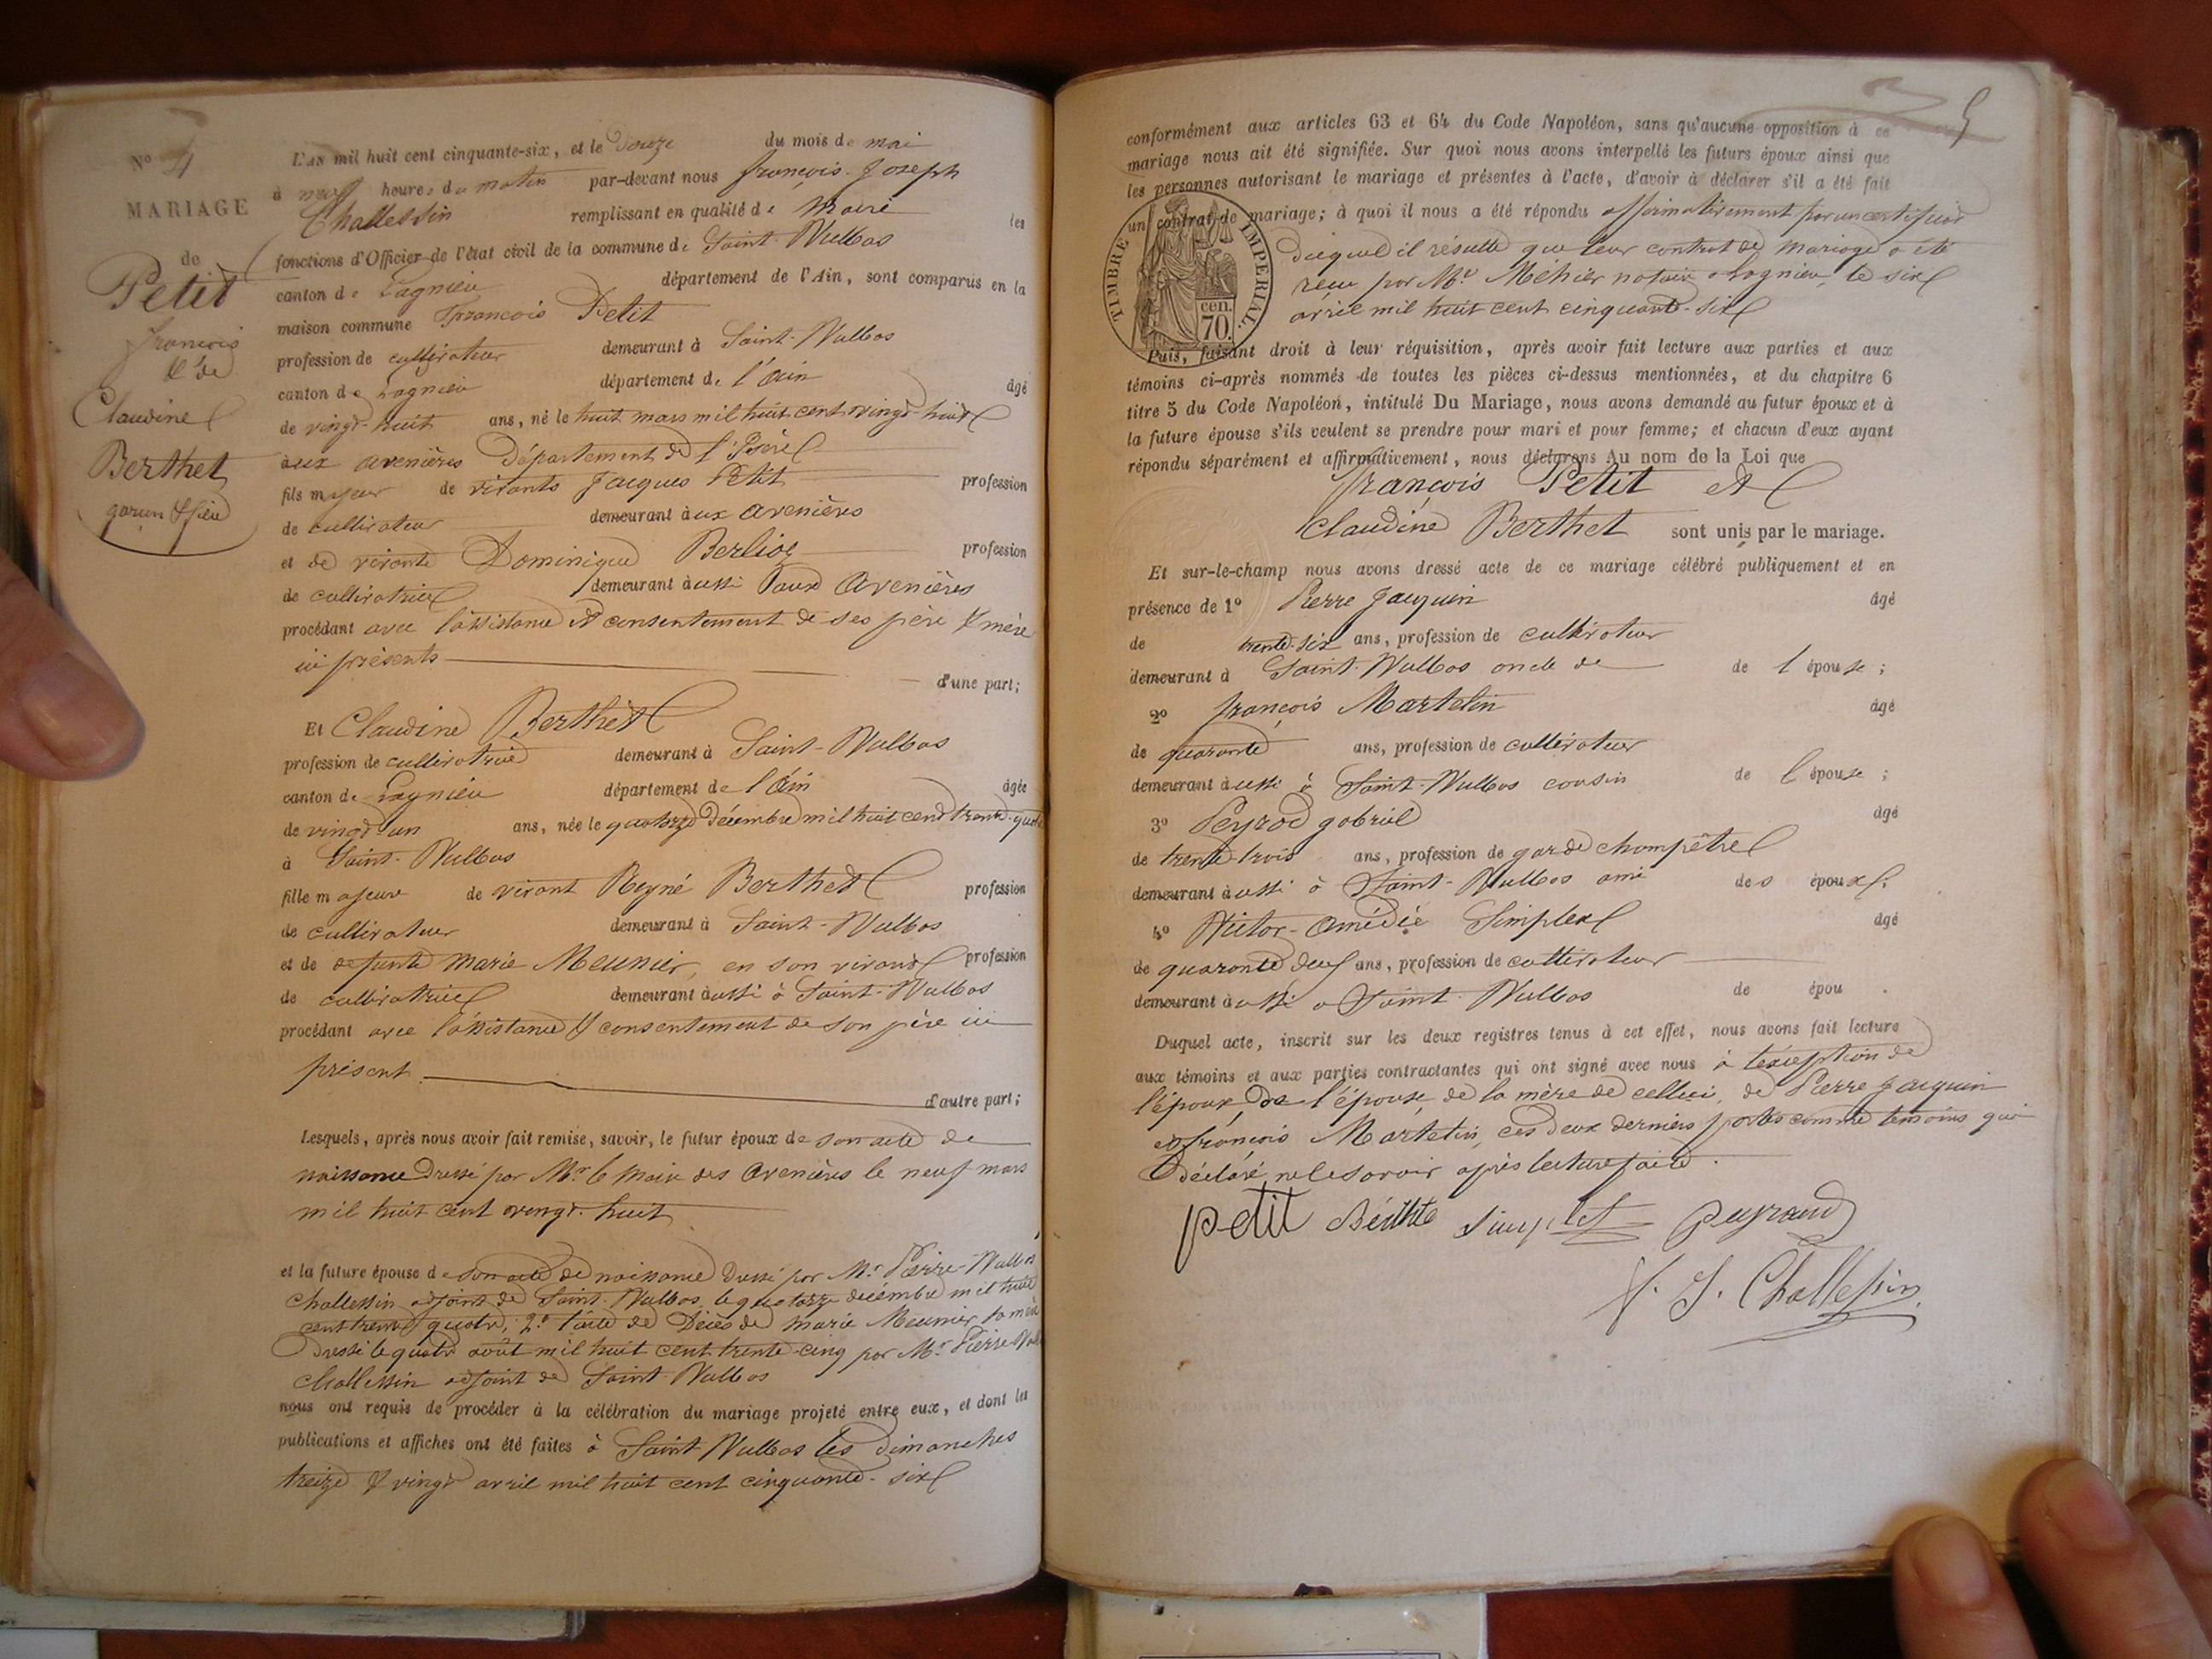 N° 4
MARIAGE
de
Petit
François
& de
Claudine
Berthet
garçon & fille
L'an mil huit cent cinquante-six, et le douze du mois de mai
à neuf heures du matin par-devant nous françois-Joseph
Challessin remplissant en qualité de Maire les
fonctions d'Officier de l'état civil de la commune de Saint-Vulbas
canton de Lagnieu département de l'Ain, sont comparus en la
maison commune François Petit
profession de cultivateur demeurant à Saint-Vulbas
canton de Lagnieu département de l'ain âgé
de vingt-huit ans, né le huit mars mil huit cent vingt-huit
aux avenières Département de l'Isère
fils majeur de vivants Jacques Petit profession
de cultivateur demeurant aux avenières
et de vivante Dominique Berlioz profession
de cultivatrice demeurant aussi aux avenières
procédant avec l'assistance et consentement de ses père & mère
ici présents
d'une part;
Et Claudine Berthet
profession de cultivatrice demeurant à Saint-Vulbas
canton de Lagnieu département de l'Ain âgée
de vingt-un ans, née le quatorze Décembre mil huit cent trente-quatre
à Saint-Vulbas
fille majeure de vivant Reyné Berthet profession
de cultivateur demeurant à Saint-Vulbas
et de defunte Marie Meunier, en son vivant profession
de cultivatrice demeurant aussi à Saint-Vulbas
procédant avec l'assistance & consentement de son père ici
présent
d'autre part;
Lesquels, après nous avoir fait remise, savoir, le futur époux de son acte de
naissance Dressé par Mr le Maire des avenières le neuf mars
mil huit cent vingt-huit
et la future épouse de son acte de naissance Dressé par Mr Pierre-Vulbas
Challessin adjoint de Saint-Vulbas le quatorze décembre mil huit
cent trente quatre, 2° l'acte de Décès de Marie Meunier sa mère
Dressé le quatre août mil huit cent trente-cinq par Mr Pierre
Challessin adjoint de Saint-Vulbas
nous ont requis de procéder à la célébration du mariage projeté entre eux, et dont les
publications et affiches ont été faites à Saint-Vulbas les dimanches
treize & vingt avril mil huit cent cinquante-six
5
conformément aux articles 63 et 64 du Code Napoléon, sans qu'aucune opposition à ce
mariage nous ait été signifiée. Sur quoi nous avons interpellé les futurs époux ainsi que
les personnes autorisant le mariage et présentes à l'acte, d'avoir à déclarer s'il a été fait
un contrat de mariage; à quoi il nous a été répondu affirmativement par un certificat
Duquel il résulte que leur contrat de mariage a été
reçu par Mr Méhier notaire a Lagnieu, le six
avril mil huit cent cinquante-six
TIMBRE IMPERIAL.
70 cen.
Puis, faisant droit à leur réquisition, après avoir fait lecture aux parties et aux
témoins ci-après nommés de toutes les pièces ci-dessus mentionnées, et du chapitre 6
titre 5 du Code Napoléon, intitulé Du Mariage, nous avons demandé au futur époux et à
la future épouse s'ils veulent se prendre pour mari et pour femme; et chacun d'eux ayant
répondu séparément et affirmativement, nous déclarons Au nom de la Loi que
François Petit et
Claudine Berthet sont unis par le mariage.
Et sur-le-champ nous avons dressé acte de ce mariage célébré publiquement et en
présence de 1° Pierre Jacquin âgé
de trente-six ans, profession de cultivateur
demeurant à Saint-Vulbas oncle de de l'épouse;
2° François Martelin âgé
de quarante ans, profession de cultivateur
demeurant aussi à Saint-Vulbas cousin de l'épouse;
3° Peyrod gabriel âgé
de trente trois ans, profession de garde champêtre
demeurant aussi à Saint-Vulbas ami des époux;
4° Victor-Amédée Simplex âgé
de quarante deux ans, profession de cultivateur
demeurant aussi a Saint-Vulbas de épou .
Duquel acte, inscrit sur les deux registres tenus à cet effet, nous avons fait lecture
aux témoins et aux parties contractantes qui ont signé avec nous à l'exception de
l'époux, de l'épouse, de la mère de celluci, de Pierre Jacquin
et françois Martelin, ces deux derniers portés comme temoins qui
déclaré ne le savoir après lecture faite.
petit Simplet Peyraud
f. J. Challessin